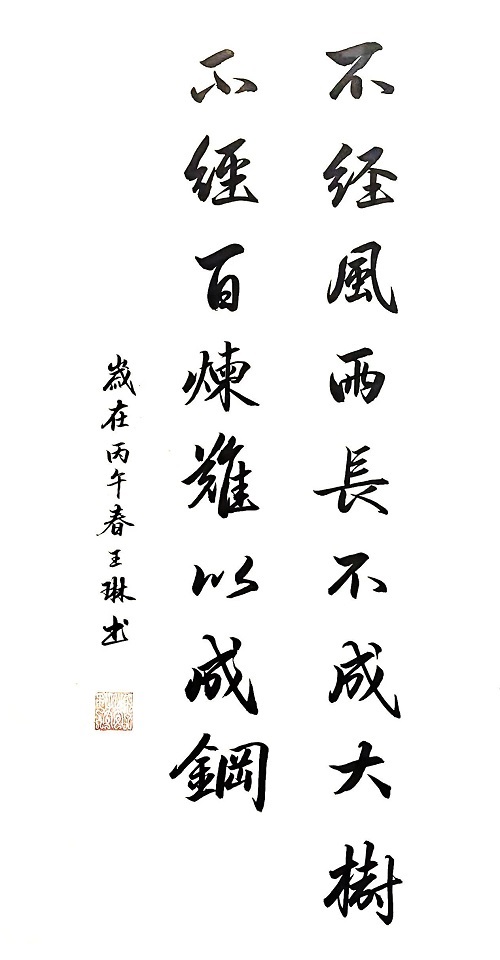 不経風雨長不成大樹
不經百煉難以成鋼
歲在丙午春王琳书